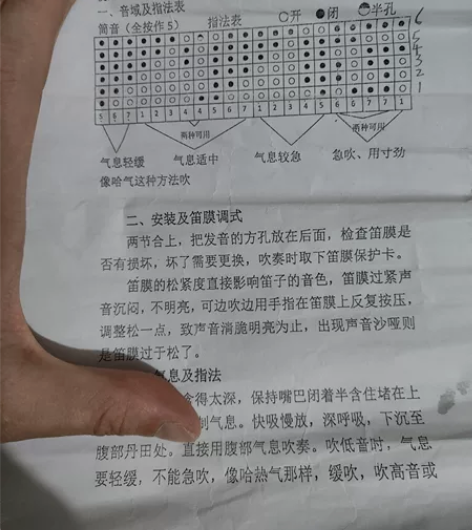 一、音域及指法表
筒音（全按作5） 指法表 ○开 ●闭 半孔
6
5
4
3
2
1
5 6 7 1 2 3 4 4 5 6 7 1 2 3 4 5 6 7 7 1
两种可用 两种可用
气息轻缓 气息适中 气息较急 急吹、用寸劲
像哈气这种方法吹
二、安装及笛膜调式
两节合上，把发音的方孔放在后面，检查笛膜是
否有损坏，坏了需要更换，吹奏时取下笛膜保护卡。
笛膜的松紧度直接影响笛子的音色，笛膜过紧声
音沉闷，不明亮，可边吹边用手指在笛膜上反复按压，
调整松一点，致声音清脆明亮为止，出现声音沙哑则
是笛膜过于松了。
气息及指法
含得太深，保持嘴巴闭着半含住堵在上
制气息。快吸慢放，深呼吸，下沉至
腹部丹田处。直接用腹部气息吹奏。吹低音时，气息
要轻缓，不能急吹，像哈热气那样，缓吹，吹高音或